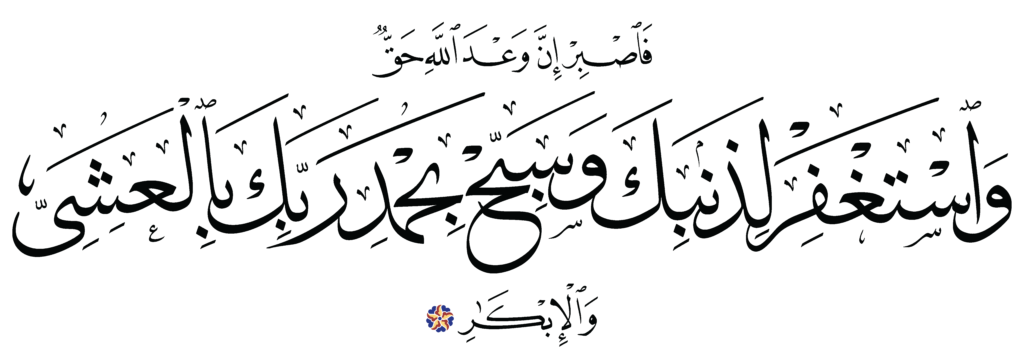 فَٱصْبِرْ إِنَّ وَعْدَ ٱللَّهِ حَقٌّ
وَٱسْتَغْفِرْ لِذَنۢبِكَ وَسَبِّحْ بِحَمْدِ رَبِّكَ بِٱلْعَشِىِّ
وَٱلْإِبْكَـٰرِ